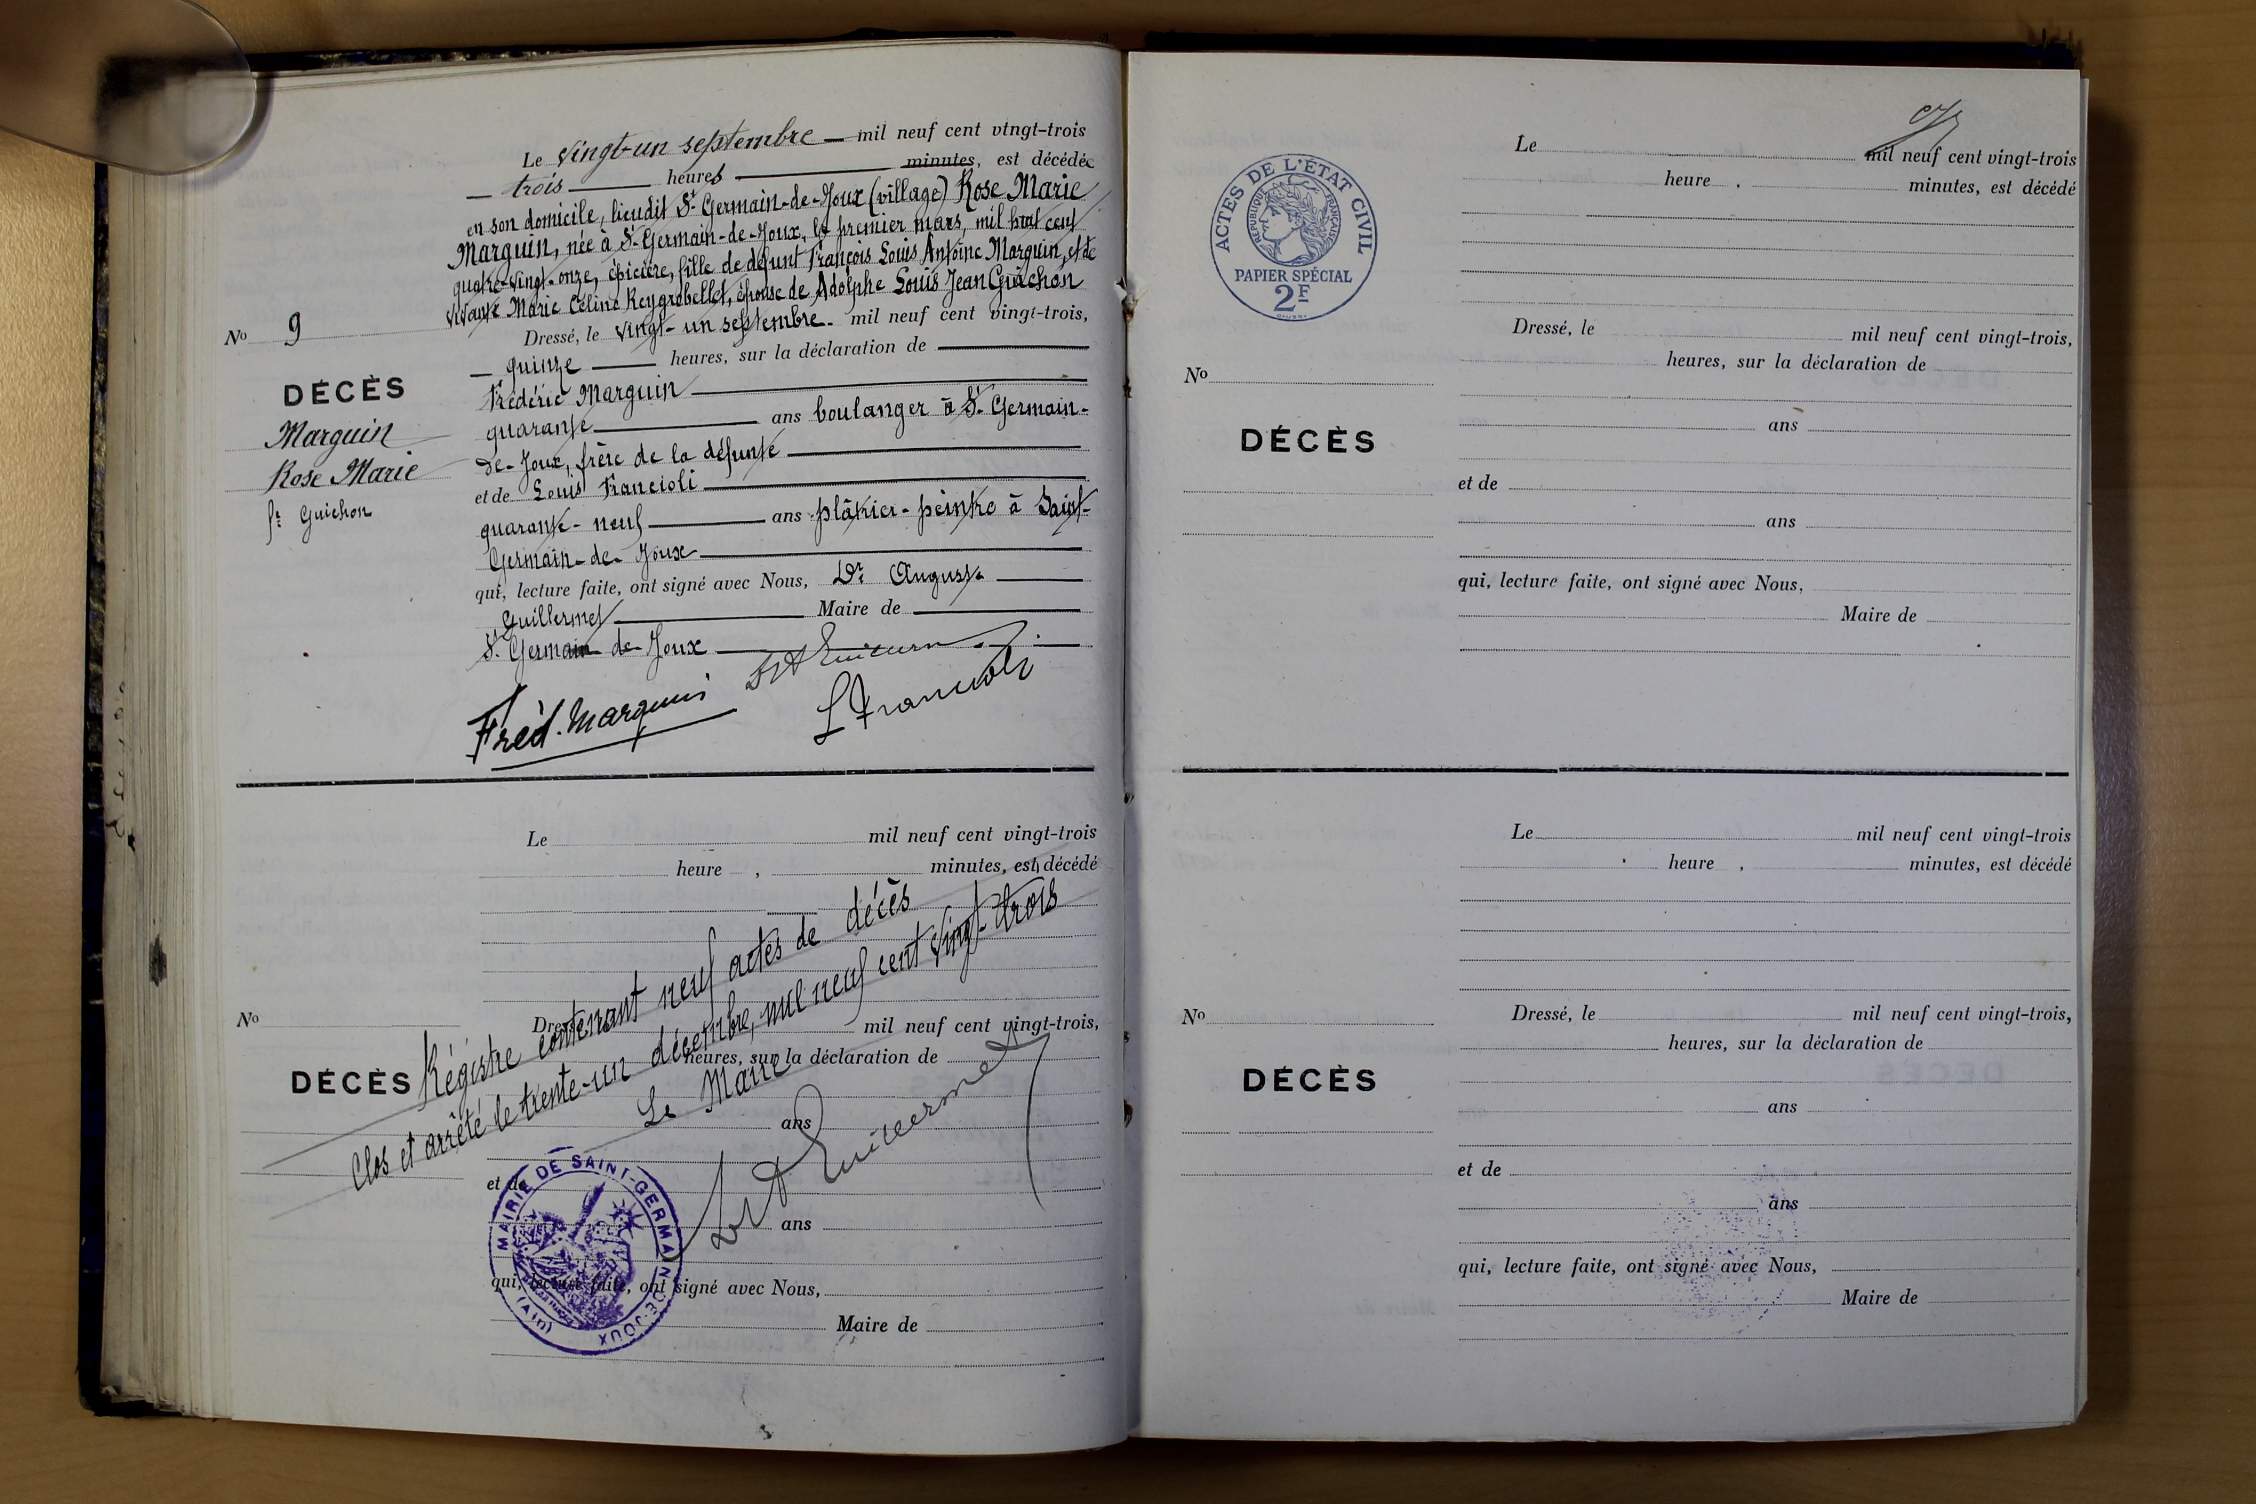 Le vingt-un septembre — mil neuf cent vingt-trois
— trois — heures — minutes, est décédée
en son domicile, lieudit St Germain-de-Joux (village) Rose Marie
Marguin, née à St Germain-de-Joux, le premier mars, mil huit cent
quatre-vingt-onze, épicière, fille de défunt François Louis Antoine Marguin, et de
vivante Marie Céline Reygrobellet, épouse de Adolphe Louis Jean Guichon
No 9
Dressé, le vingt-un septembre - mil neuf cent vingt-trois,
— quinze — heures, sur la déclaration de —
DÉCÈS
Frédéric Marguin —
Marguin
quarante — ans boulanger à St Germain-
Rose Marie
de-Joux, frère de la défunte —
fe Guichon
et de Louis Francioli —
quarante-neuf — ans plâtrier-peintre à Saint-
Germain-de-Joux —
qui, lecture faite, ont signé avec Nous, Dr Auguste —
Guillermet — Maire de —
St Germain de-Joux —
Dr A Guillermet
Fréd. Marguin
L Francioli
Le mil neuf cent vingt-trois
heure , minutes, est décédé
No
Dressé, le mil neuf cent vingt-trois,
heures, sur la déclaration de
DÉCÈS
ans
et de
ans
qui, lecture faite, ont signé avec Nous,
Maire de
Régistre contenant neuf actes de décès
Clos et arrêté le trente-un décembre, mil neuf cent vingt-trois
Le Maire
Dr A Guillermet
MAIRIE DE SAINT-GERMAIN-DE-JOUX
(AIN)
ACTES DE L'ÉTAT CIVIL
RÉPUBLIQUE FRANÇAISE
PAPIER SPÉCIAL
2F
Le mil neuf cent vingt-trois
heure , minutes, est décédé
Dressé, le mil neuf cent vingt-trois,
heures, sur la déclaration de
No
ans
DÉCÈS
et de
ans
qui, lecture faite, ont signé avec Nous,
Maire de
Le mil neuf cent vingt-trois
heure , minutes, est décédé
No
Dressé, le mil neuf cent vingt-trois,
heures, sur la déclaration de
DÉCÈS
ans
et de
ans
qui, lecture faite, ont signé avec Nous,
Maire de